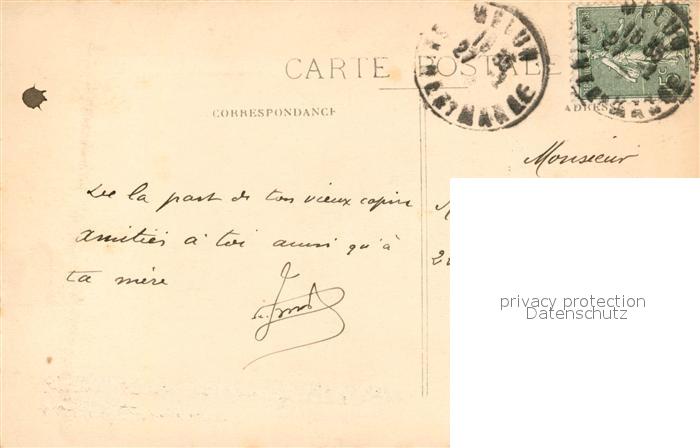 MELUN
15 35
27
SEINE-ET-MARNE
CARTE POSTALE
CORRESPONDANCE
ADRES
Monsieur
De la part de ton vieux copin
amitiés à toi ainsi qu'à
ta mère
privacy protection
Datenschutz